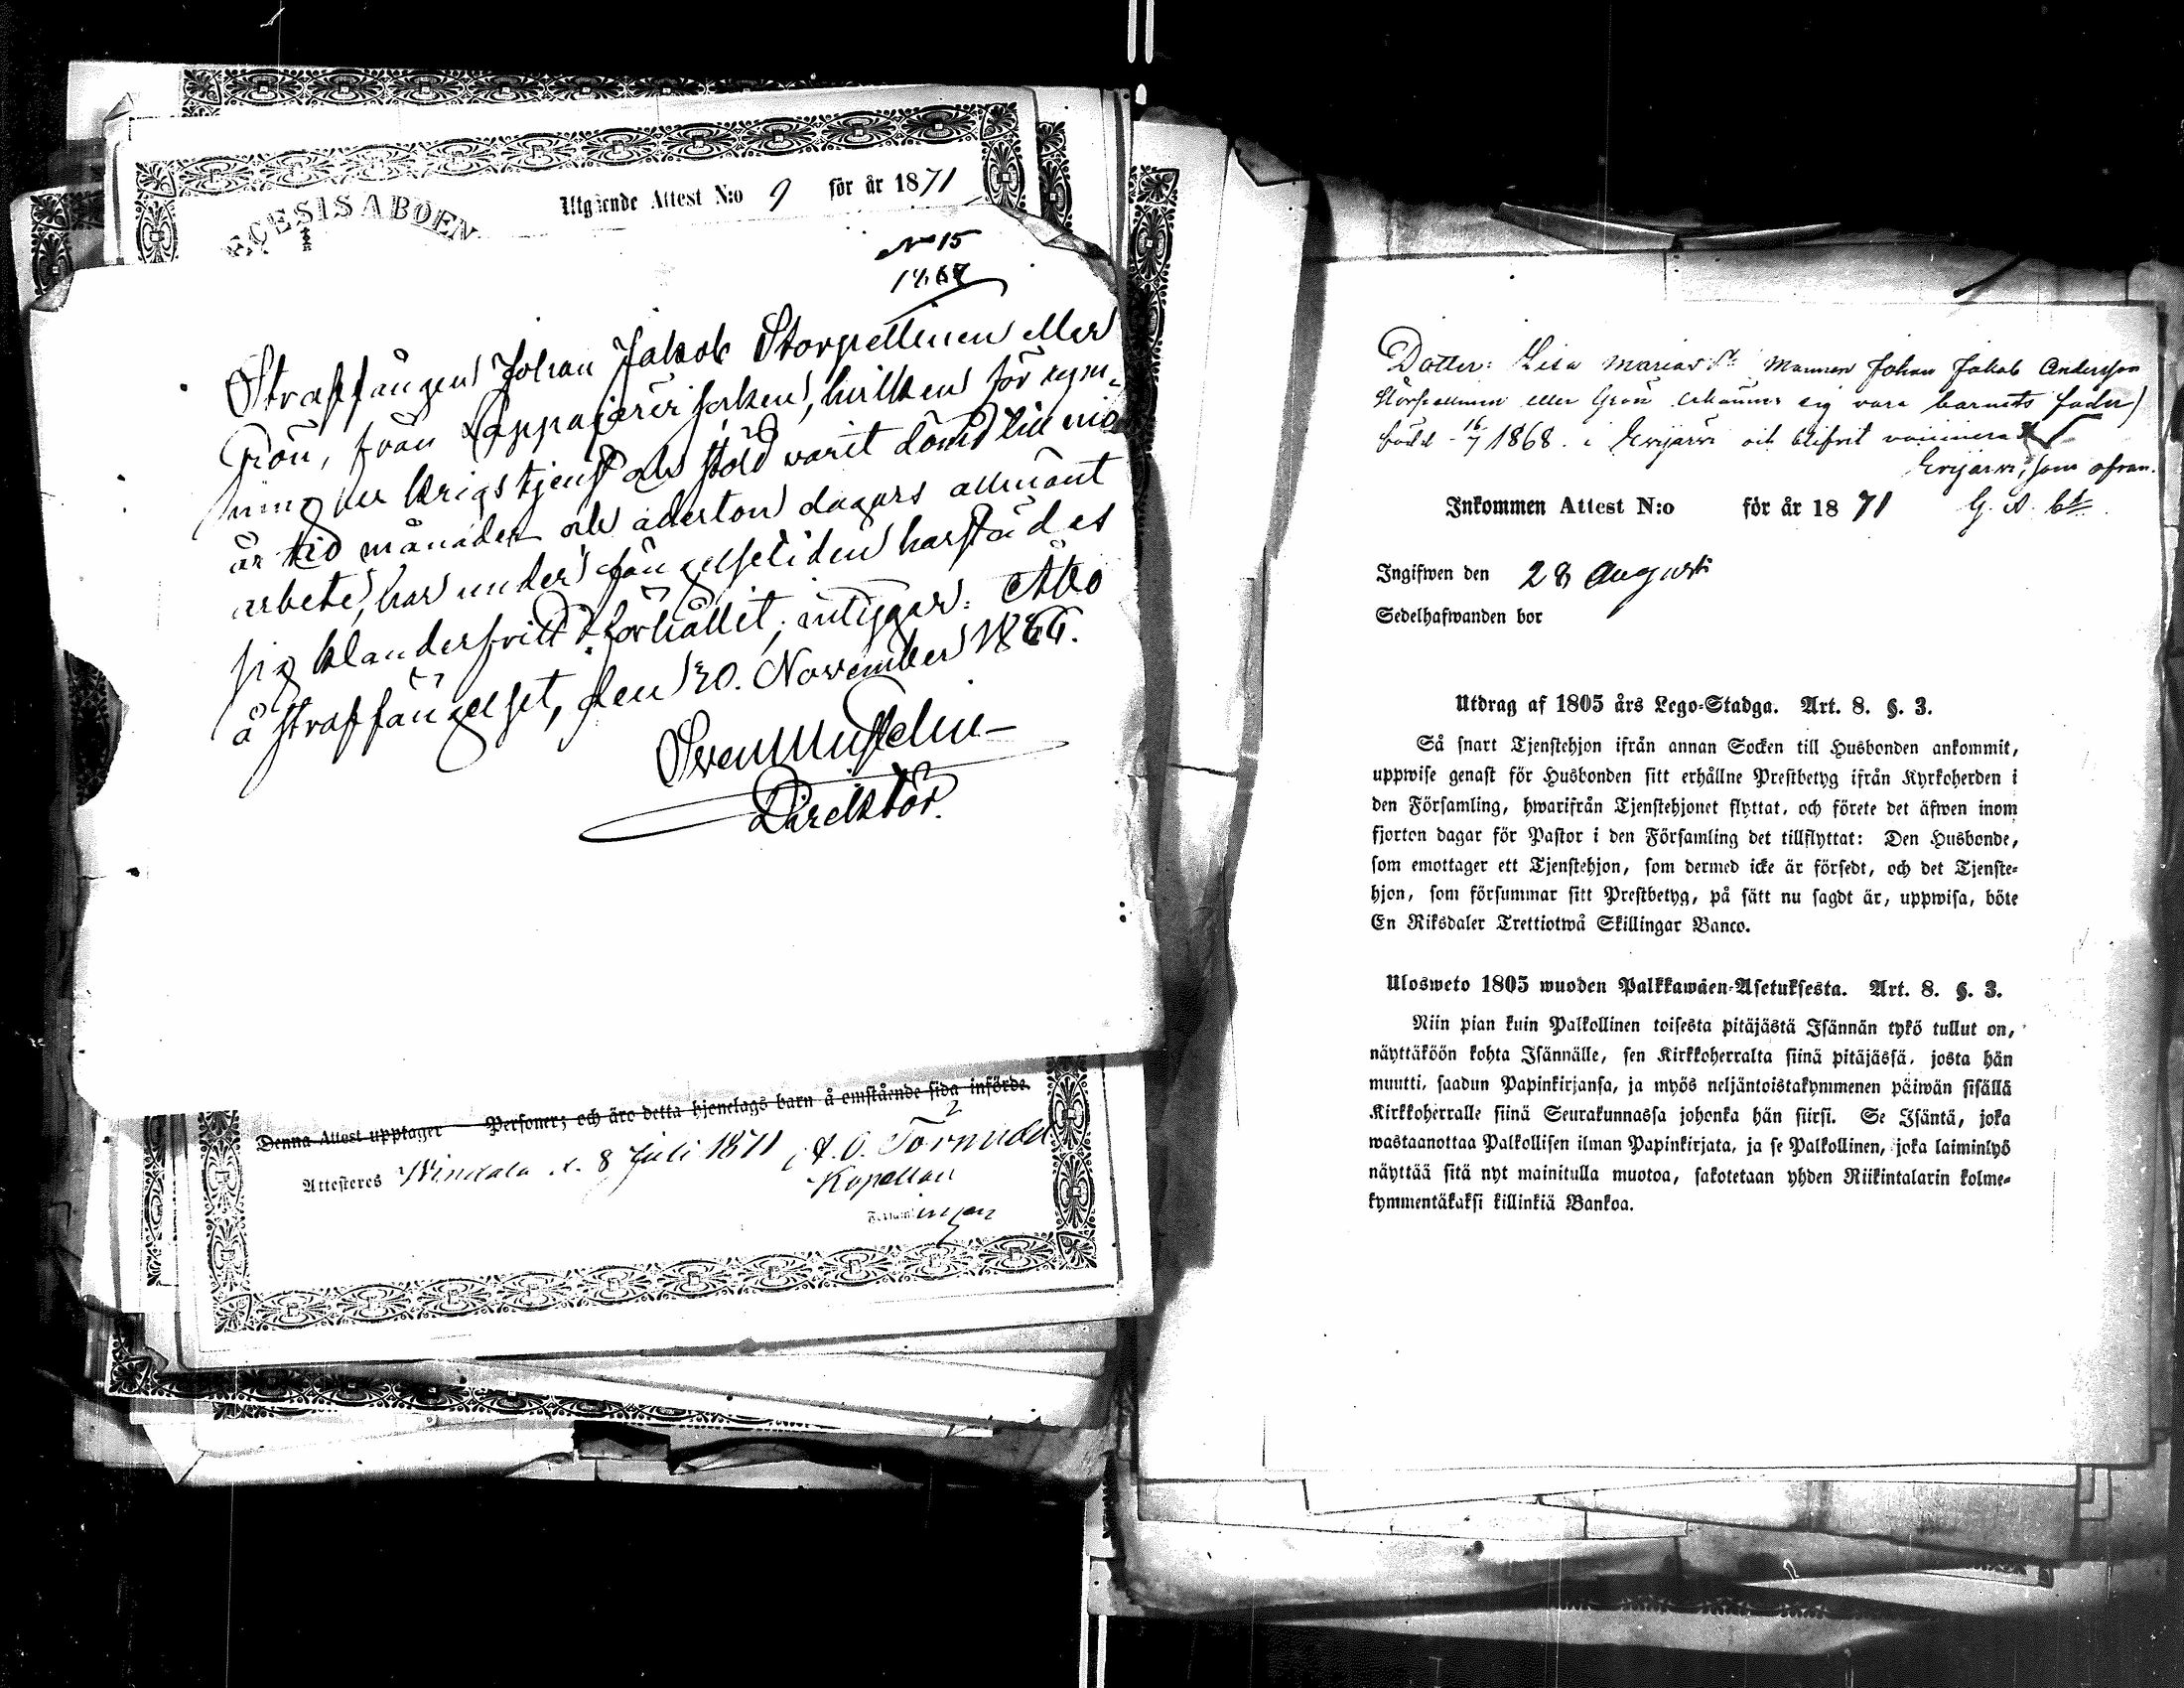 Utgående Attest N:o 9 för år 1871
ECESIS ABOEN
No 15
1867
Straffången Johan Jakob Storpellinen eller
Grön, från Lappajärvi socken, hvilken för rym-
ning ur krigstjenst och stöld varit dömd till nio
år två månader och aderton dagars allmänt
arbete, har under fängelsetiden härstädes
sig klanderfritt förhållit; intygar: Åbo
å straffängelset, den 30. November 1866.
Direktör.
Denna Attest upptager Personer; och äro detta hjonelags barn å omstående sida införde.
2
Attesteres Windala d. 8 Juli 1871 A. O. Törnudd
Kapellan
Dotter: Lisa Mariasdr Mannen Johan Jakob Andersson
eller Grön erkänner sig vara barnets fader)
född 16/7 1868 i Evijärvi och blifvit vaccinerad
Evijärvi, som ofvan.
Inkommen Attest N:o för år 1871
Ingifwen den 28 Augusti
Sedelhafwanden bor
Utdrag af 1805 års Lego-Stadga. Art. 8. §. 3.
Så snart Tjenstehjon ifrån annan Socken till Husbonden ankommit,
uppwise genast för Husbonden sitt erhållne Prestbetyg ifrån Kyrkoherden i
den Församling, hwarifrån Tjenstehjonet flyttat, och förete det äfwen inom
fjorton dagar för Pastor i den Församling det tillflyttat: Den Husbonde,
som emottager ett Tjenstehjon, som dermed icke är försedt, och det Tjenste-
hjon, som försummar sitt Prestbetyg, på sätt nu sagdt är, uppwisa, böte
En Riksdaler Trettiotwå Skillingar Banco.
Ulosweto 1805 wuoden Palkkawäen-Asetuksesta. Art. 8. §. 3.
Niin pian kuin Palkollinen toisesta pitäjästä Isännän tykö tullut on,
näyttäköön kohta Isännälle, sen Kirkkoherralta siinä pitäjässä, josta hän
muutti, saadun Papinkirjansa, ja myös neljäntoistakymmenen päiwän sisällä
Kirkkoherralle siinä Seurakunnassa johonka hän siirsi. Se Isäntä, joka
wastaanottaa Palkollisen ilman Papinkirjata, ja se Palkollinen, joka laiminlyö
näyttää sitä nyt mainitulla muotoa, sakotetaan yhden Riikintalarin kolme-
kymmentäkaksi killinkiä Bankoa.